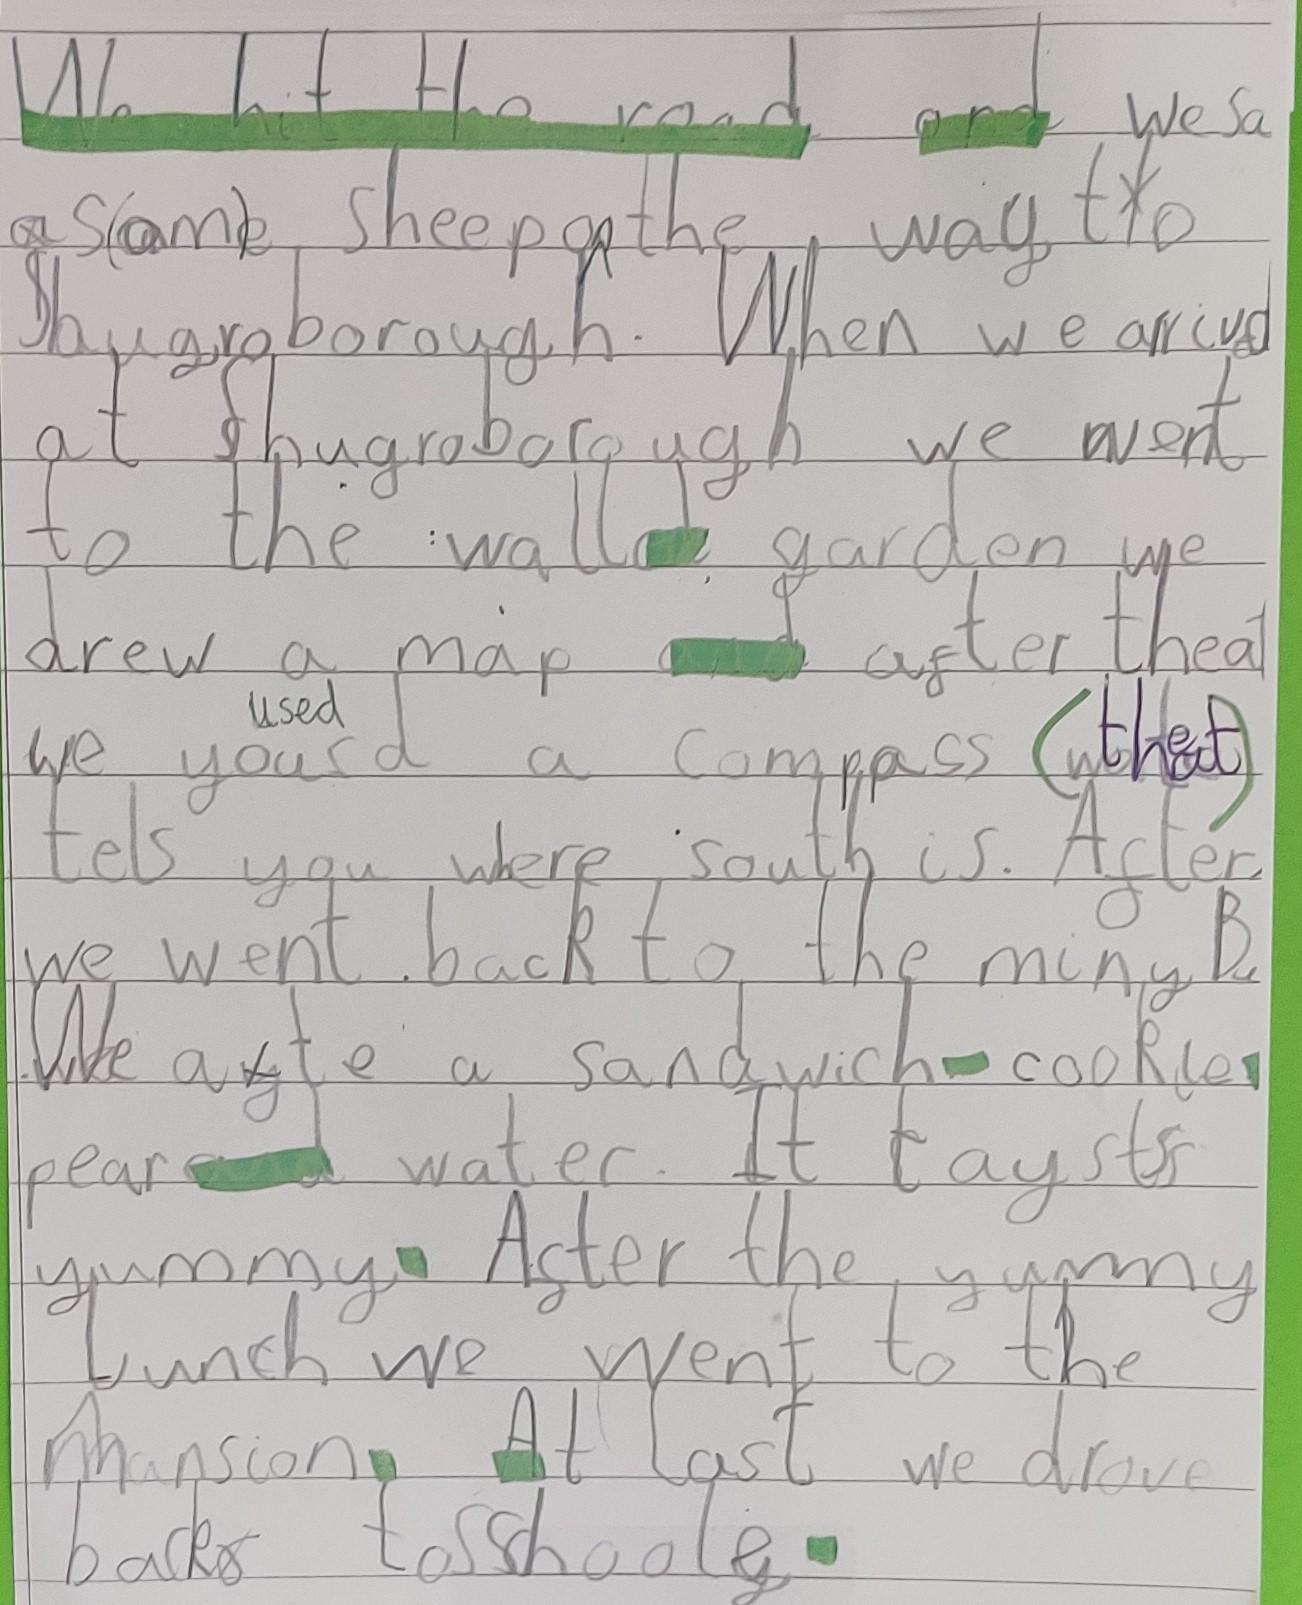 We hit the road and we sa
a some sheep on the way to
Shugroborough. When we arrivd
at Shugroborough we went
to the walled garden we
drew a map and after theat
used
we yousd a compass (that)
tels you where south is. After
we went back to the miny Bu
We ate a sandwich cookie
pear and water. It taysts
yummy. After the yummy
Lunch we went to the
mansion. At last we drove
back to sshoole.